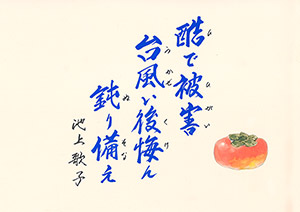 酷で被害
台風い後悔ん
鈍り備え
池上歌子